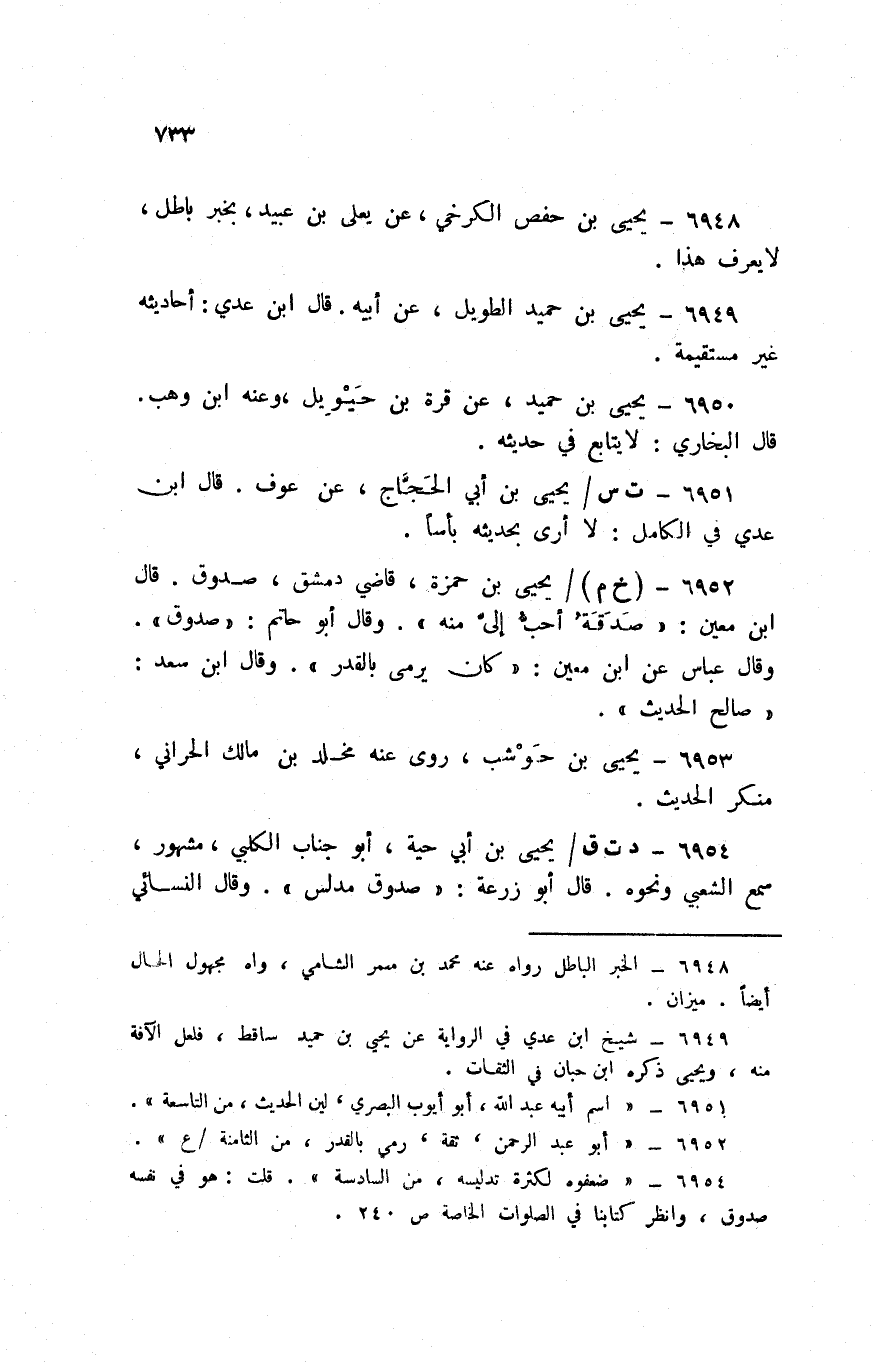 ٧٣٣
٦٩٤٨ – يحيى بن حفص الكرخي ، عن يعلى بن عبيد ، بخبر باطل ،
لايعرف هذا .
٦٩٤٩ – يحيى بن حميد الطويل ، عن أبيه . قال ابن عدي : أحاديثه
غير مستقيمة .
٦٩٥٠ – يحيى بن حميد ، عن قرة بن حَيْوِيل ، وعنه ابن وهب .
قال البخاري : لايتابع في حديثه .
٦٩٥١ – ت س / يحيى بن أبي الحَجَّاج ، عن عوف . قال ابن
عدي في الكامل : لا أرى بحديثه بأساً .
٦٩٥٢ – (خ م) / يحيى بن حمزة ، قاضي دمشق ، صدوق . قال
ابن معين : « صَدَقَةُ أحبُّ إليَّ منه » . وقال أبو حاتم : « صدوق » .
وقال عباس عن ابن معين : « كان يرمى بالقدر » . وقال ابن سعد :
« صالح الحديث » .
٦٩٥٣ – يحيى بن حَوْشب ، روى عنه مخلد بن مالك الحراني ،
منكر الحديث .
٦٩٥٤ – د ت ق / يحيى بن أبي حية ، أبو جناب الكلبي ، مشهور ،
سمع الشعبي ونحوه . قال أبو زرعة : « صدوق مدلس » . وقال النسائي
٦٩٤٨ – الخبر الباطل رواه عنه محمد بن مسمر الشامي ، واه مجهول الحال
أيضاً . ميزان .
٦٩٤٩ – شيخ ابن عدي في الرواية عن يحيي بن حميد ساقط ، فلعل الآفة
منه ، ويحيى ذكره ابن حبان في الثقات .
٦٩٥١ – « اسم أبيه عبد الله ، أبو أيوب البصري ، لين الحديث ، من التاسعة » .
٦٩٥٢ – « أبو عبد الرحمن ، ثقة ، رمي بالقدر ، من الثامنة / ع » .
٦٩٥٤ – « ضعفوه لكثرة تدليسه ، من السادسة » . قلت : هو في نفسه
صدوق ، وانظر كتابنا في الصلوات الخاصة ص ٢٤٠ .